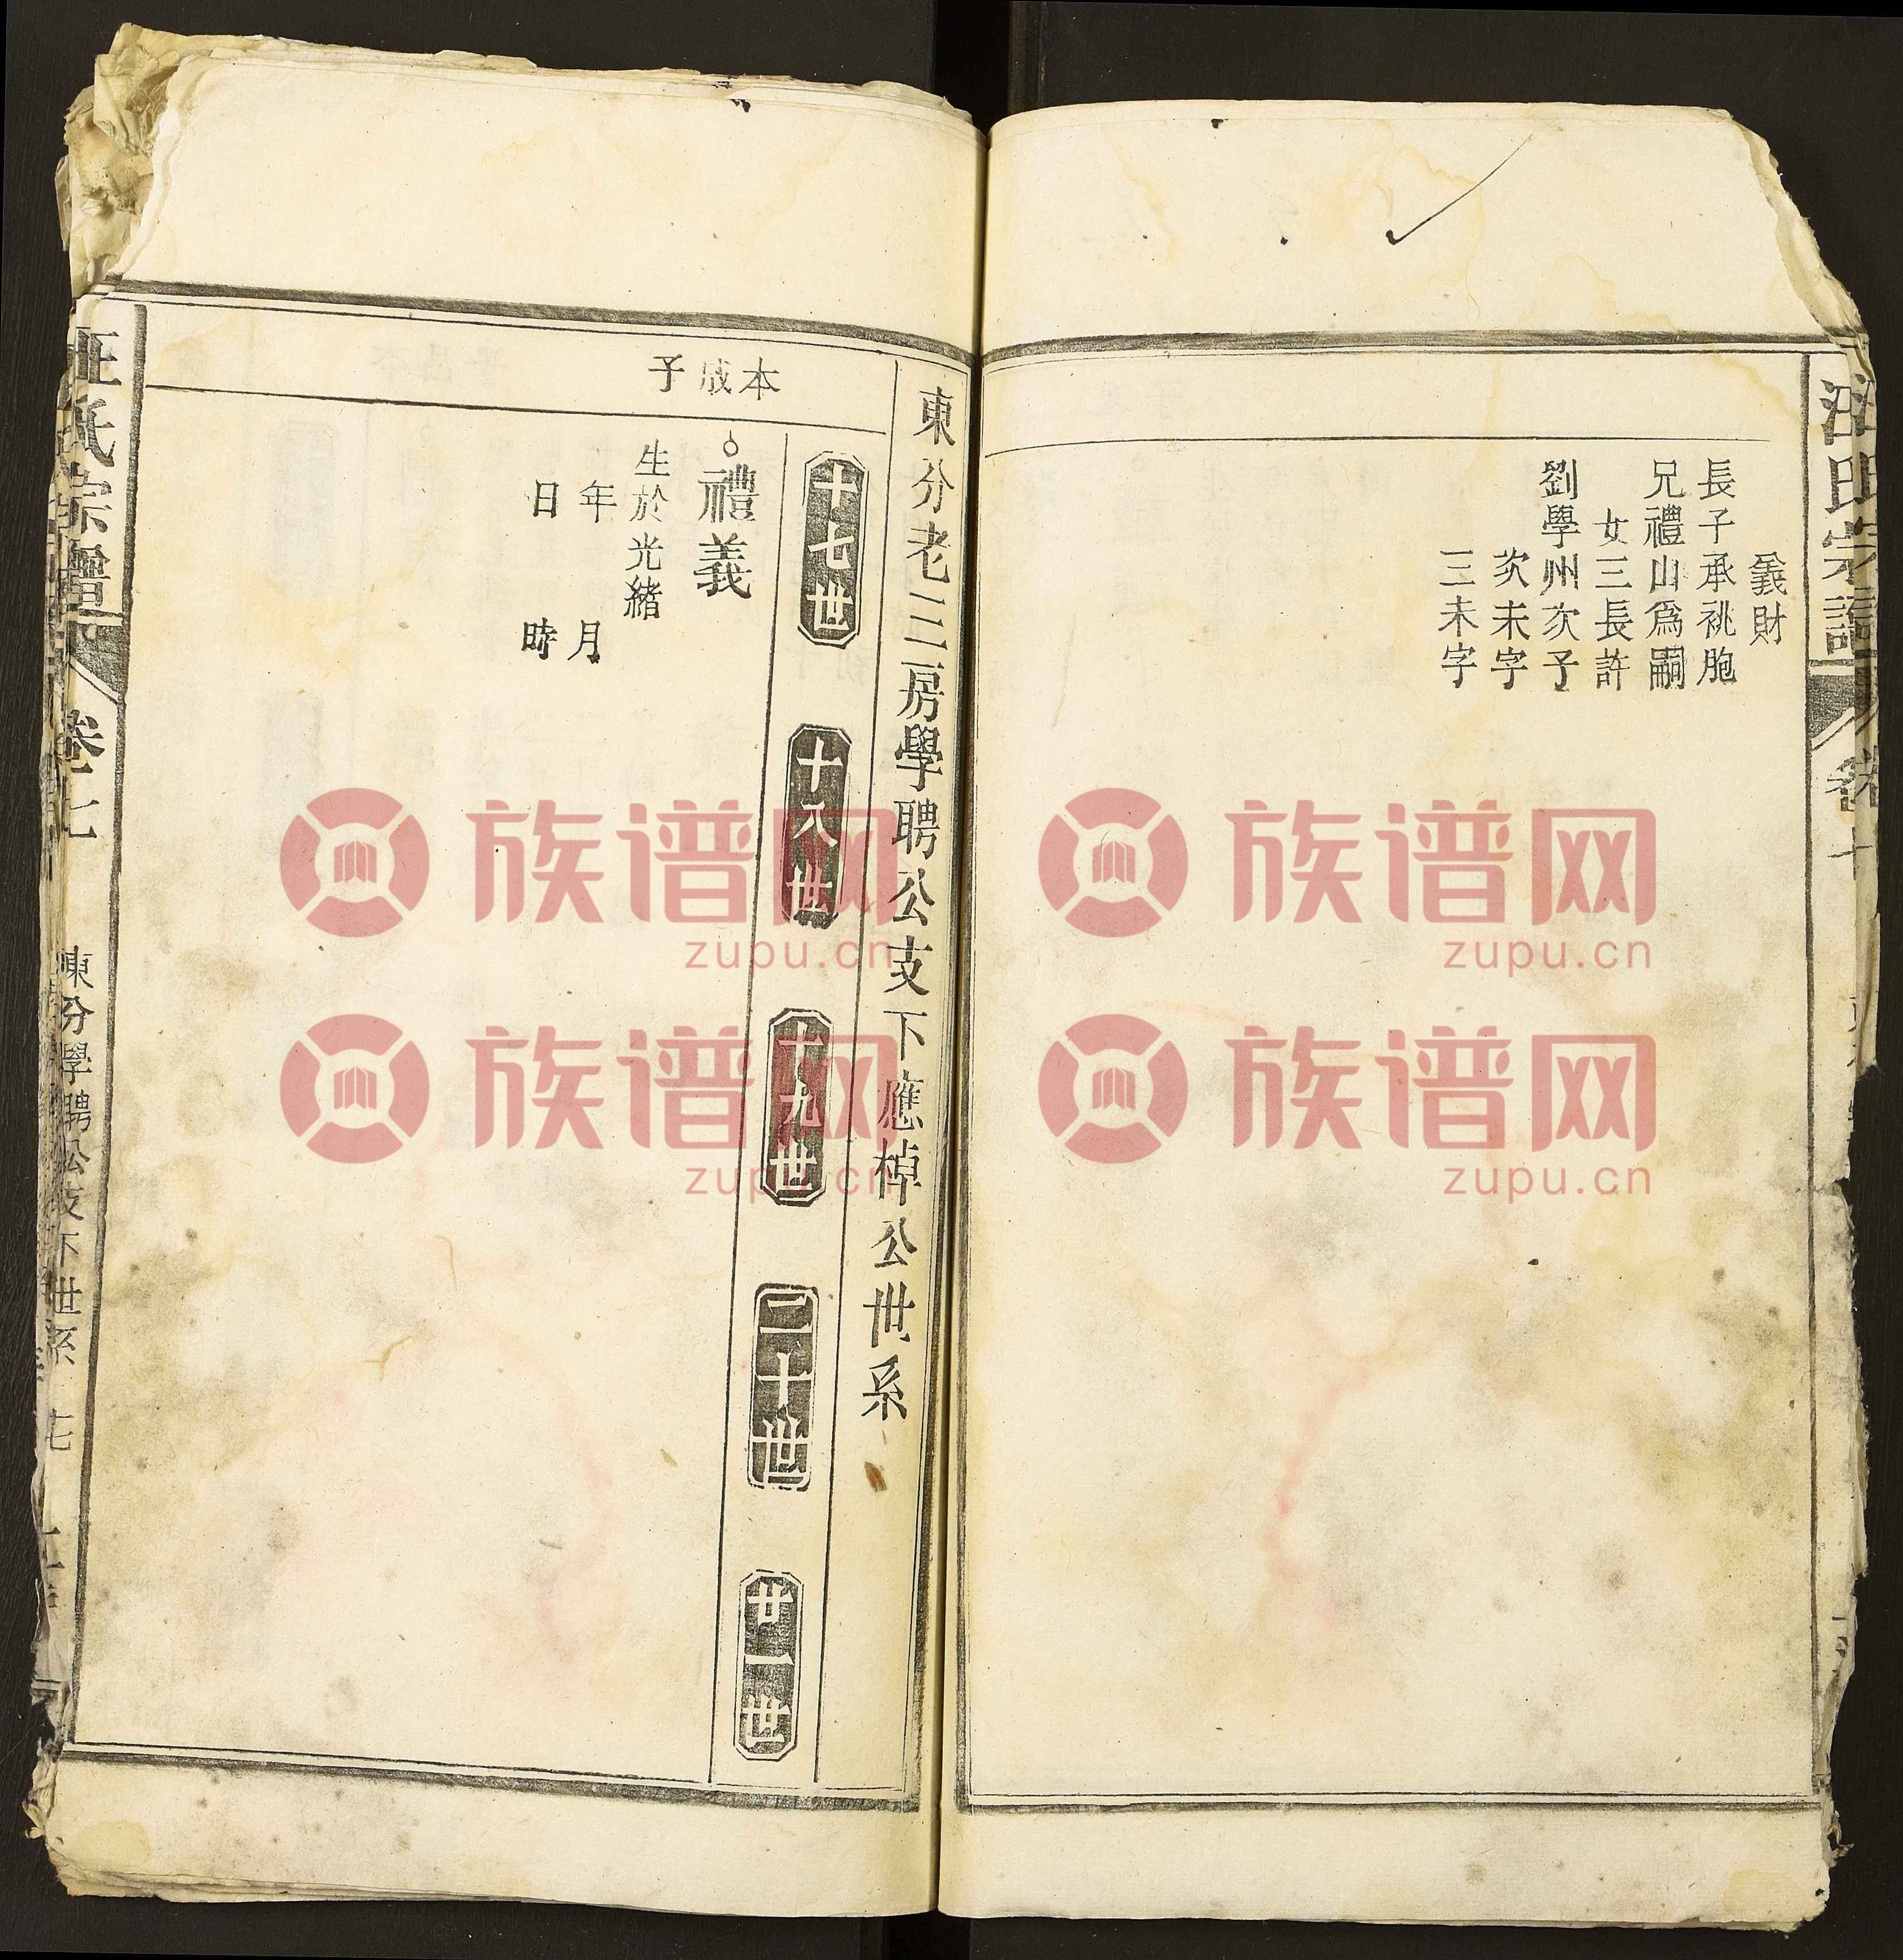 汪氏宗譜
義財
長子承祧胞
兄禮山爲嗣
女三長許
劉學州次子
次未字
三未字
東分老三房學聘公支下應棹公世系
十七世
十八世
十九世
二十世
廿一世
本成子
禮義
生於光緒
年 月
日 時
汪氏宗譜
卷七
東分學聘公支下世系
族谱网
zupu.cn
族谱网
zupu.cn
族谱网
zupu.cn
族谱网
zupu.cn